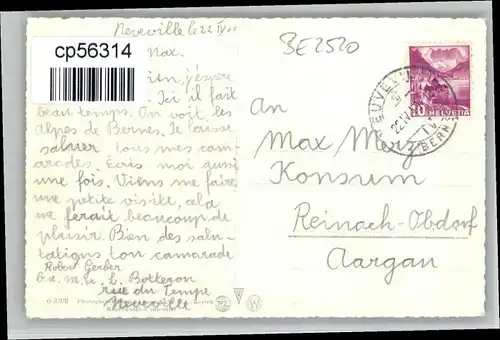 Neveville le 22 IV
BE2520
cp56314
Max.
j'espère
Ici il fait
beau temps. On voit, les
Alpes de Bernes. Je laisse
saluer tous mes cam-
arades. Ecris moi aussi
une fois. Viens me faire
une petite visite, cela
me ferait beaucoup de
plaisir. Bien des salu-
tations ton camarade
Robert Gerber
b. Botteron
rue du Tempe
Neveville
An
Max Merz
Konsum
Reinach-Obdorf
Aargau
HELVETIA
10
22.IV
(BERN)